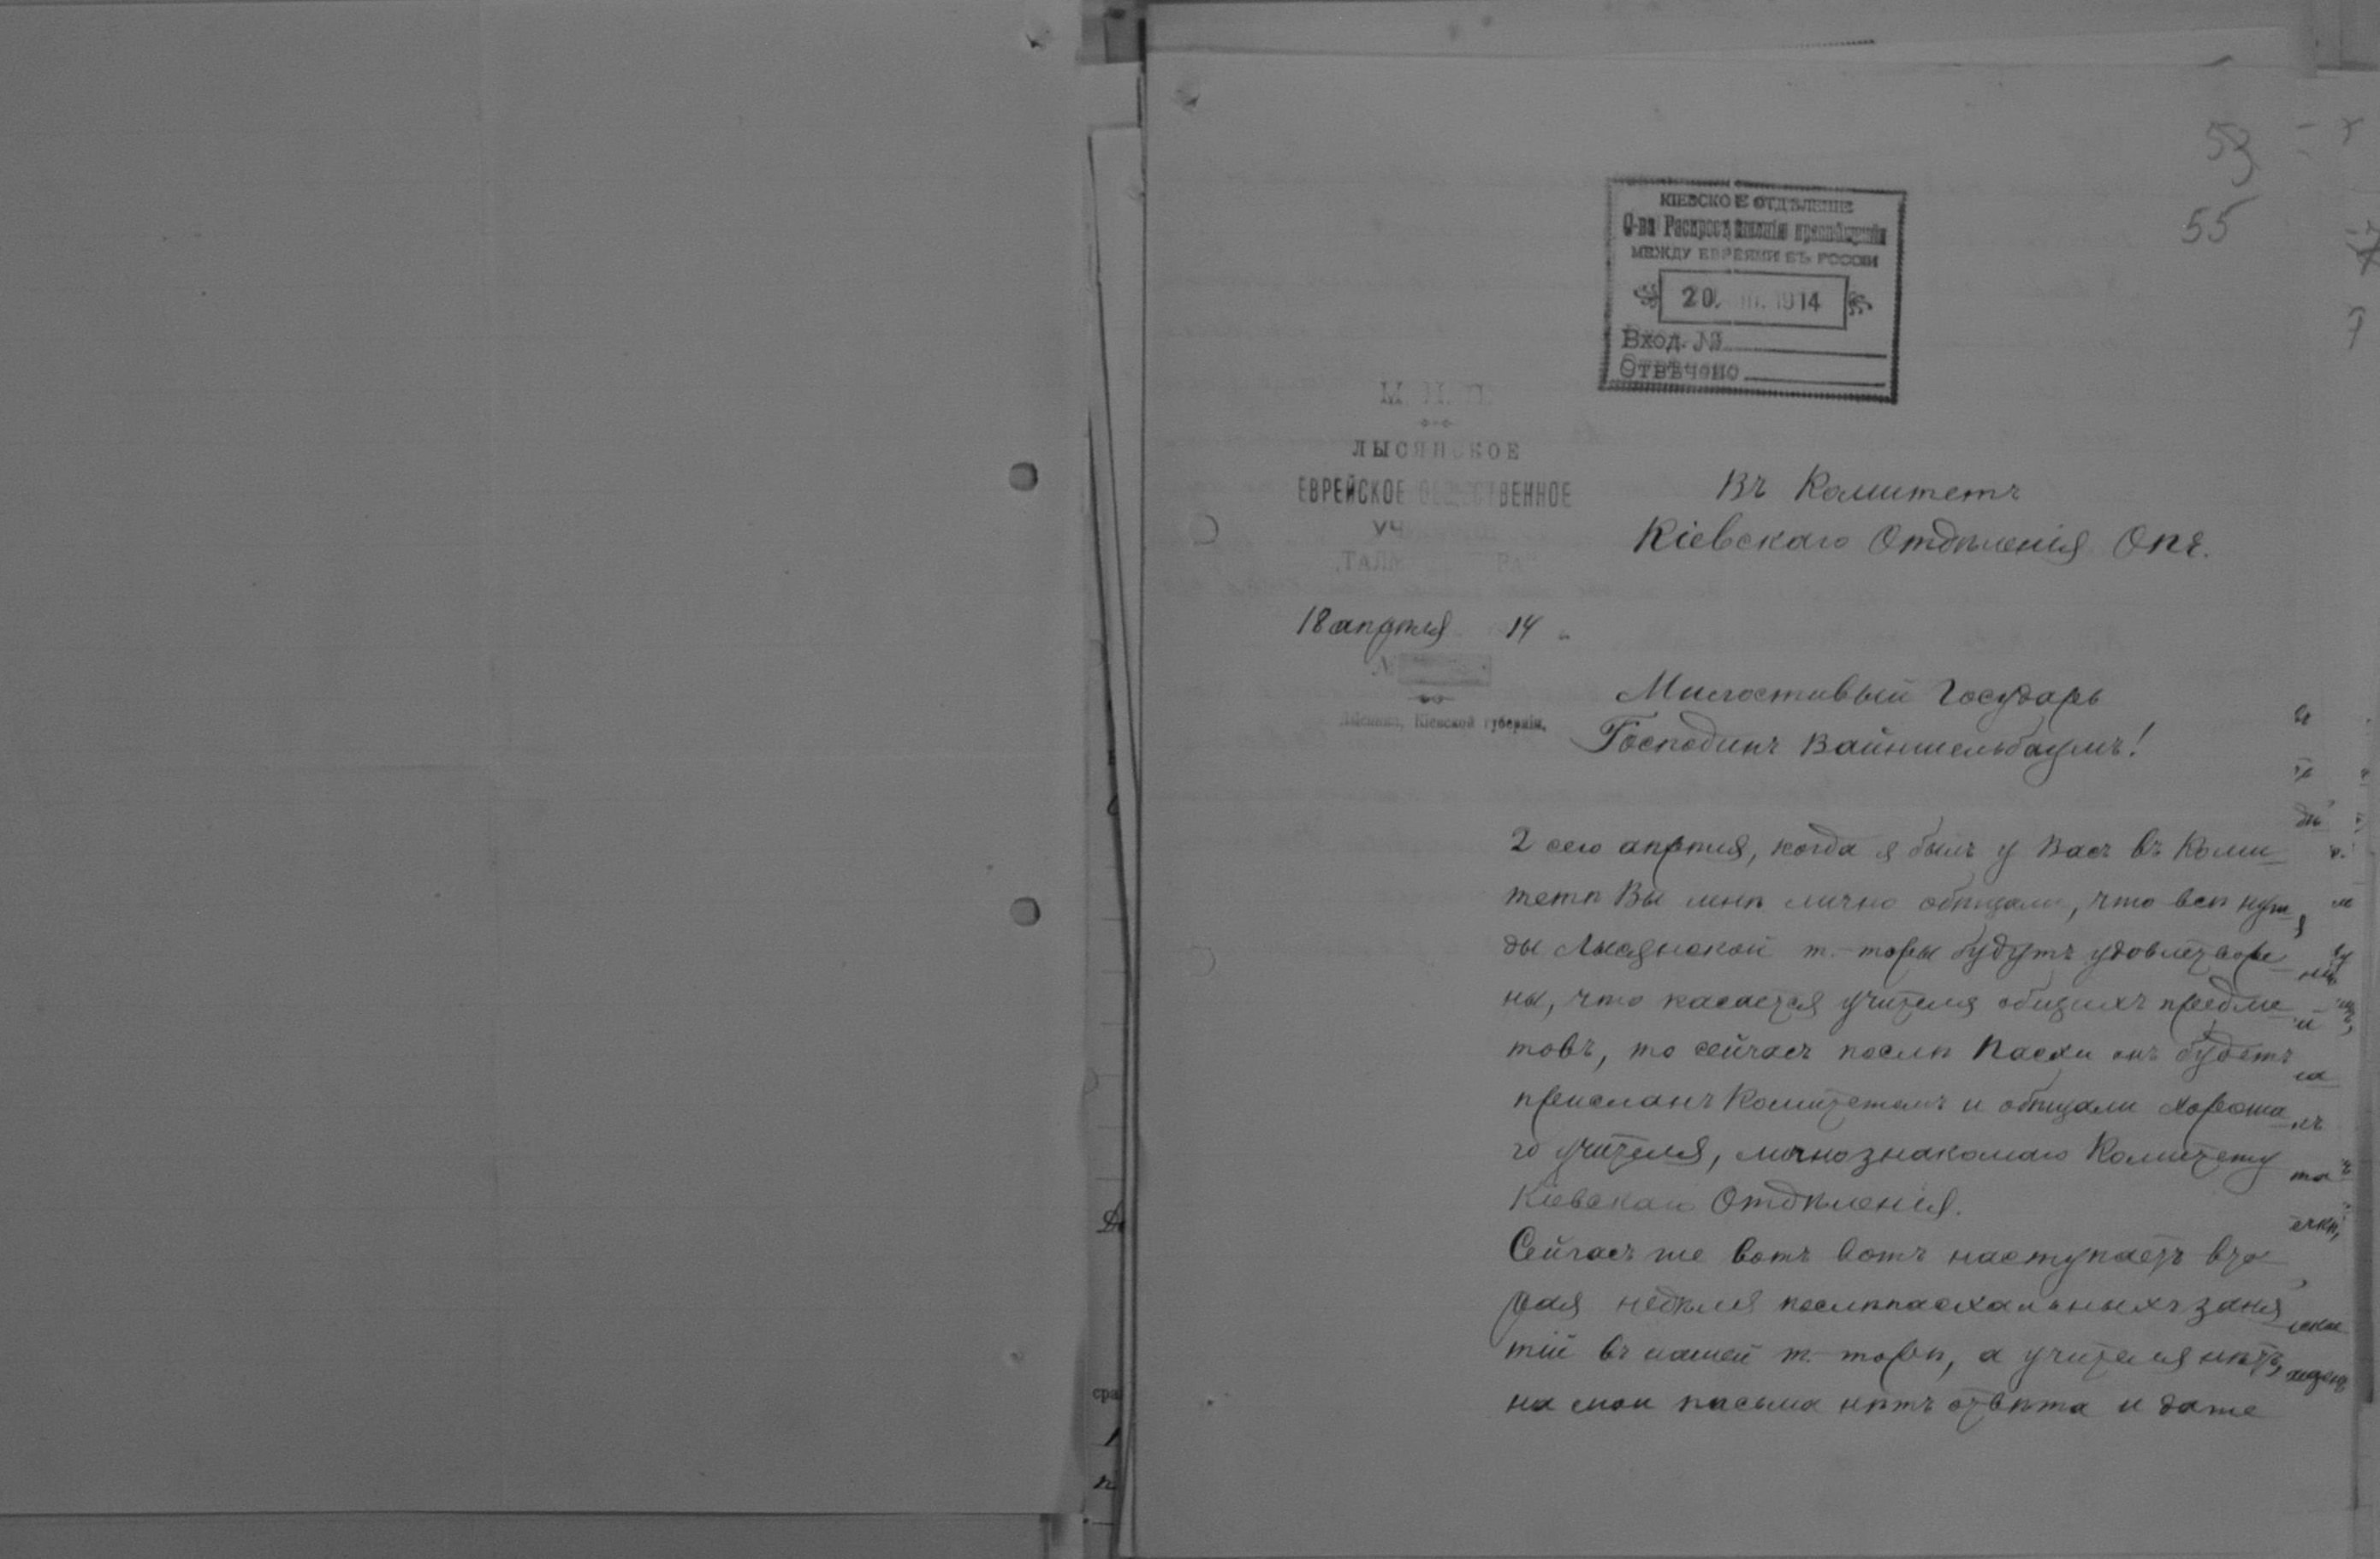 53
55
КІЕВСКОЕ ОТДѢЛЕНІЕ
О-ва Распространенія просвѣщенія
МЕЖДУ ЕВРЕЯМИ ВЪ РОССІИ
20. III. 1914
Вход. №
Отвѣчено
М. Н. П.
ЛЫСЯНСКОЕ
ЕВРЕЙСКОЕ ОБЩЕСТВЕННОЕ
18 апрѣля 14
№
Кіевской губерніи.
Въ Комитетъ
Кіевскаго Отдѣленія Опе.
Милостивый Государь
Господинъ Вайншельбаумъ!
2 сего апрѣля, когда я былъ у Васъ въ Коми
тетѣ Вы мнѣ лично обѣщали, что всѣ нуж
ды Лысянской т.-торы будутъ удовлетворе
ны, что касается учителя общихъ предме
товъ, то сейчасъ послѣ Пасхи онъ будетъ
присланъ Комитетомъ и обѣщали хороша
го учителя, лично знакомаго Комитету
Кіевскаго Отдѣленія.
Сейчасъ же вотъ вотъ наступаетъ вто
рая недѣля послѣпасхальныхъ заня
тій въ нашей т.-торѣ, а учителя нѣтъ,
на мои письма нѣтъ отвѣта и даже